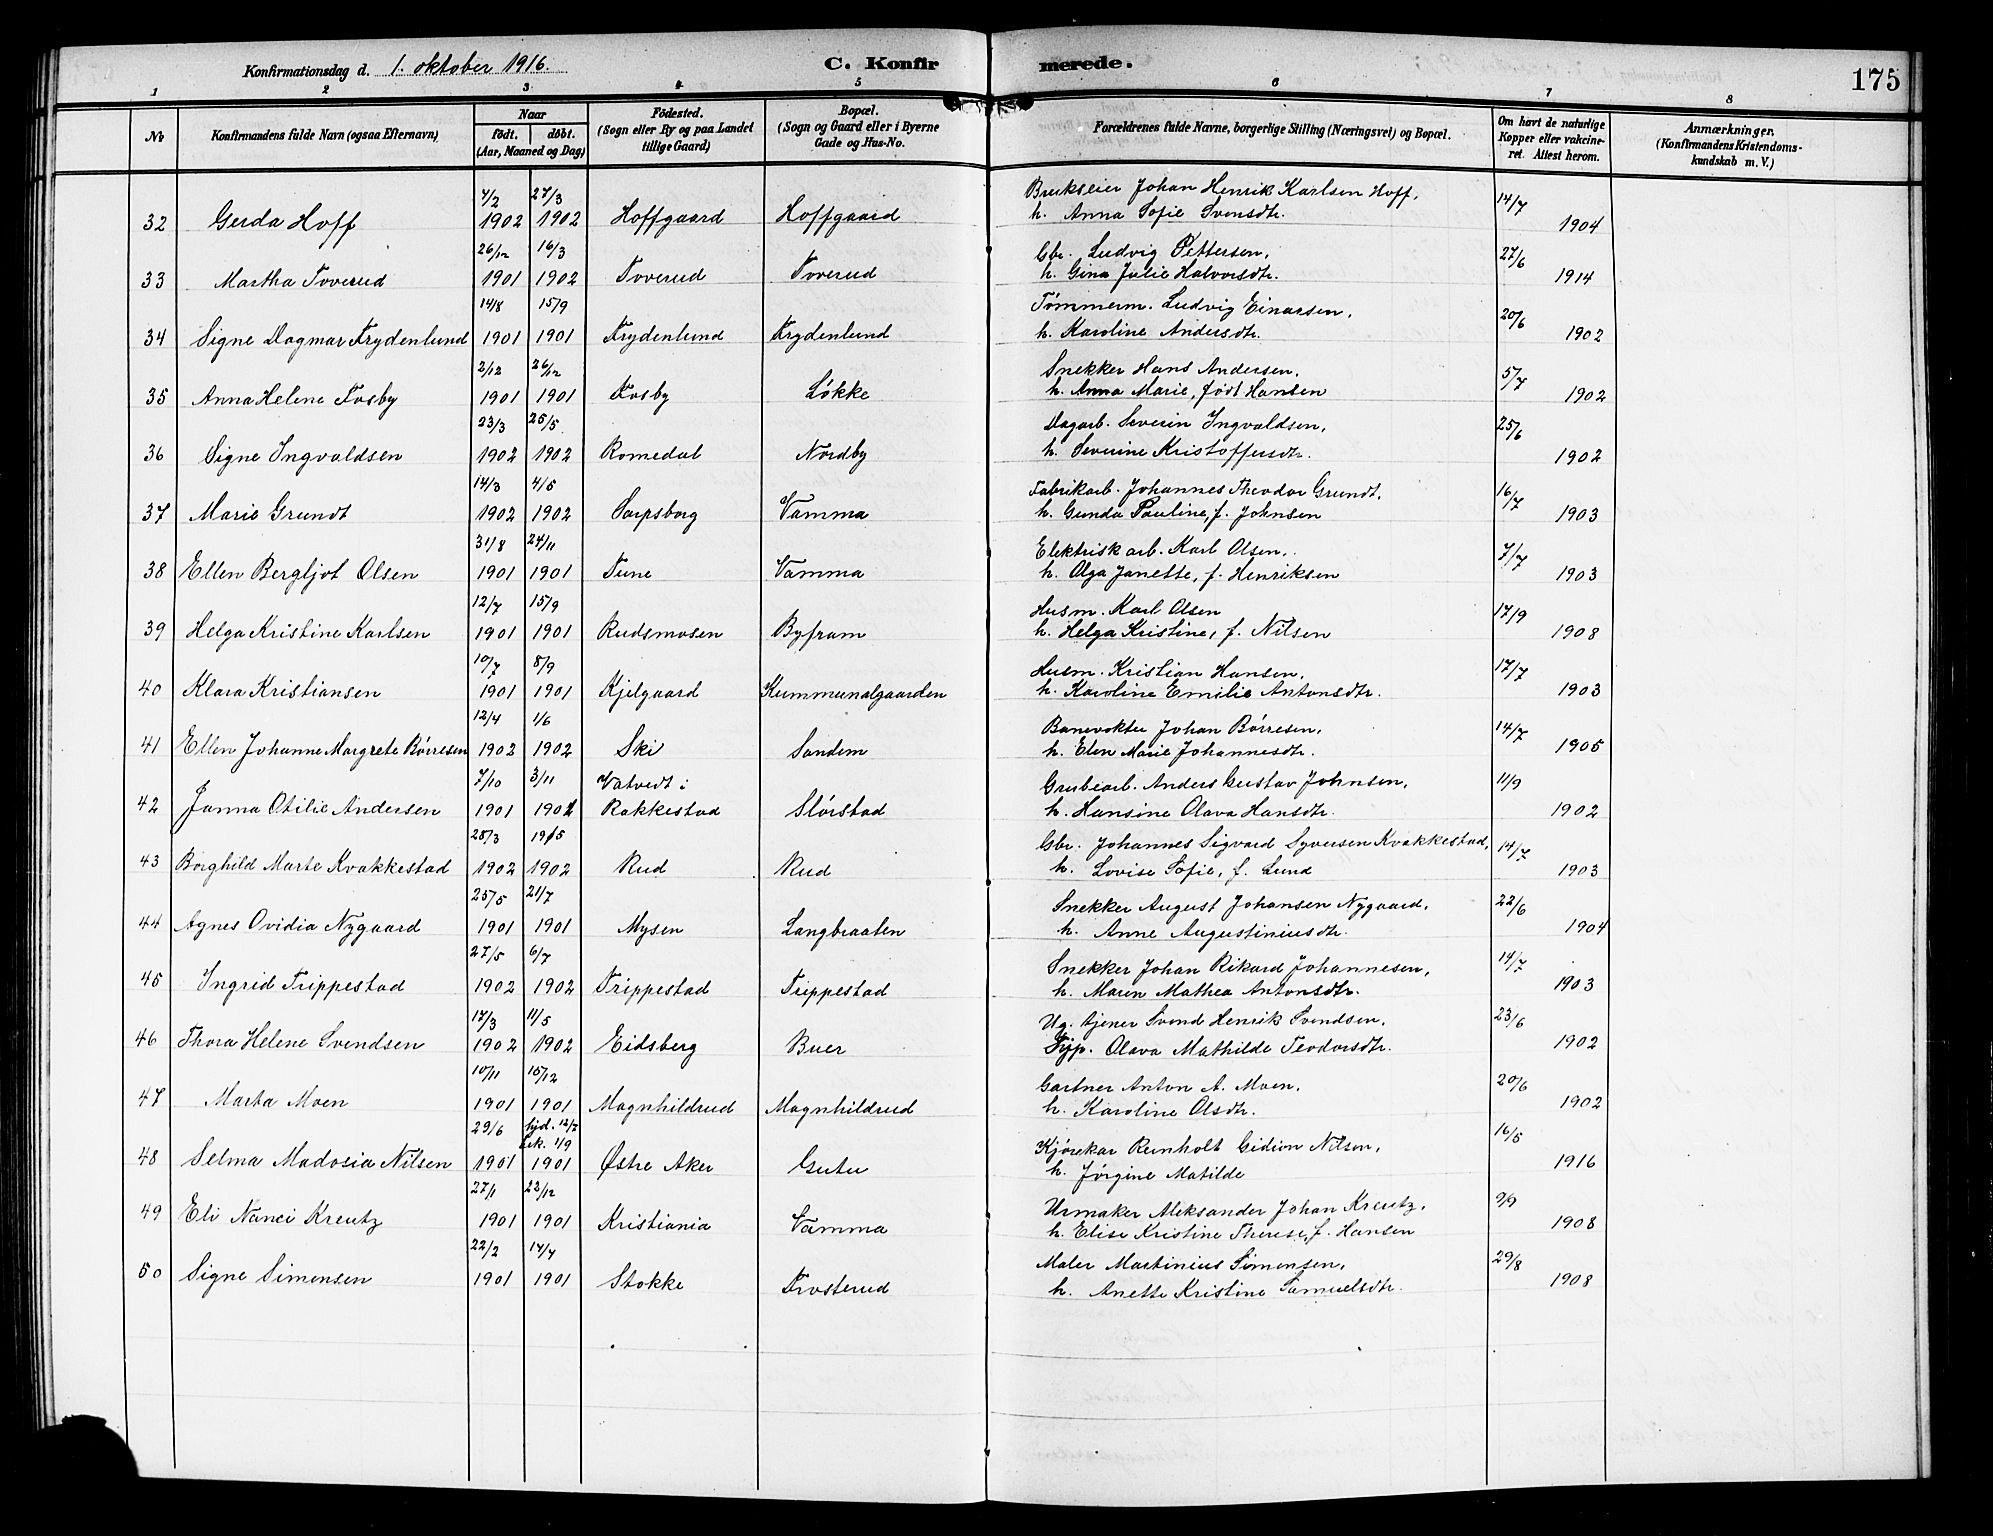 Konfirmationsdag d. 1. oktober 1916.
C. Konfirmerede.
175
1 2 3 4 5 6 7 8
No
Konfirmandens fulde Navn (ogsaa Efternavn)
Naar
født. døbt.
(Aar, Maaned og Dag)
Fødested.
(Sogn eller By og paa Landet
tillige Gaard)
Bopæl.
(Sogn og Gaard eller i Byerne
Gade og Hus-No.
Forældrenes fulde Navne, borgerlige Stilling (Næringsvei) og Bopæl.
Om havt de naturlige
Kopper eller vakcine-
ret. Attest herom.
Anmærkninger.
(Konfirmandens Kristendoms-
kundskab m. V.)
7/2 27/3 Brukseier Johan Henrik Karlsen Hoff, 14/7
32 Gerda Hoff 1902 1902 Hoffgaard Hoffgaard h. Anna Sofie Svensdtr. 1904
26/12 16/3 Gbr. Ludvig Pettersen, 27/6
33 Martha Toverud 1901 1902 Toverud Toverud h. Gina Julie Halvorsdtr. 1914
14/8 15/9 Tømmerm. Ludvig Einarsen, 20/6
34 Signe Dagmar Frydenlund 1901 1901 Frydenlund Frydenlund h. Karoline Andersdtr. 1902
2/12 26/12 Snekker Hans Andersen, 5/7
35 Anna Helene Fosby 1901 1901 Fosby Løkke h. Anna Marie, født Hansen 1902
23/3 25/5 Dagarb. Severin Ingvaldsen, 25/6
36 Signe Ingvaldsen 1902 1902 Romedal Nordby h. Severine Kristoffersdtr. 1902
14/3 4/5 Fabrikarb. Johannes Theodor Grundt, 16/7
37 Marie Grundt 1902 1902 Sarpsborg Vamma h. Gunda Pauline, f. Johnsen 1903
31/8 24/11 Elektrisk arb. Karl Olsen, 7/7
38 Ellen Bergljot Olsen 1901 1901 Tune Vamma h. Olga Janette, f. Henriksen 1903
12/7 15/9 Husm. Karl Olsen 17/9
39 Helga Kristine Karlsen 1901 1901 Rudsmosen Byfram h. Helga Kristine, f. Nilsen 1908
10/7 8/9 Husm. Kristian Hansen, 17/7
40 Klara Kristiansen 1901 1901 Kjilgaard Kummunalgaarden h. Karoline Emilie Antonsdtr. 1903
12/4 1/6 Banevokter Johan Børresen, 14/7
41 Ellen Johanne Margrete Børresen 1902 1902 Ski Sandem h. Elen Marie Johannesdtr. 1905
7/10 3/11 Vatvedt i Grubearb. Anders Gustav Johnsen, 11/9
42 Janna Otilie Andersen 1901 1901 Rakkestad Slørstad h. Hansine Olava Hansdtr. 1902
25/3 19/5 Gbr. Johannes Sigvard Syversen Kvakkestad, 14/7
43 Borghild Marte Kvakkestad 1902 1902 Rud Rud h. Lovise Sofie, f. Lund 1903
25/5 21/7 Snekker August Johansen Nygaard, 22/6
44 Agnes Ovidia Nygaard 1901 1901 Mysen Langbraaten h. Anne Augustiniusdtr. 1904
27/5 6/7 Snekker Johan Rikard Johannesen, 14/7
45 Ingrid Trippestad 1902 1902 Trippestad Trippestad h. Maren Mathea Antonsdtr. 1903
17/3 11/5 Ug. tjener Svend Henrik Svendsen, 23/6
46 Thora Helene Svendsen 1902 1902 Eidsberg Buer Olava Mathilde Teodorsdtr. 1902
10/11 15/12 Gartner Anton A. Moen, 20/6
47 Marta Moen 1901 1901 Magnhildrud Magnhildrud h. Karoline Olsdtr. 1902
29/6 hjd. 12/7 Kjørekar Reinholt Gidion Nilsen, 16/5
bek. 1/9
48 Selma Madosia Nilsen 1901 1901 Østre Aker Gutu h. Jørgine Matilde 1916
27/1 22/12 Urmaker Aleksander Johan Kreutz, 9/9
49 Eli Nanci Kreutz 1901 1901 Kristiania Vamma h. Elise Kristine Therese, f. Hansen 1908
22/2 14/4 Maler Martinius Simensen, 29/8
50 Signe Simensen 1901 1901 Stokke Frosterud h. Anette Kristine Samuelsdtr. 1908